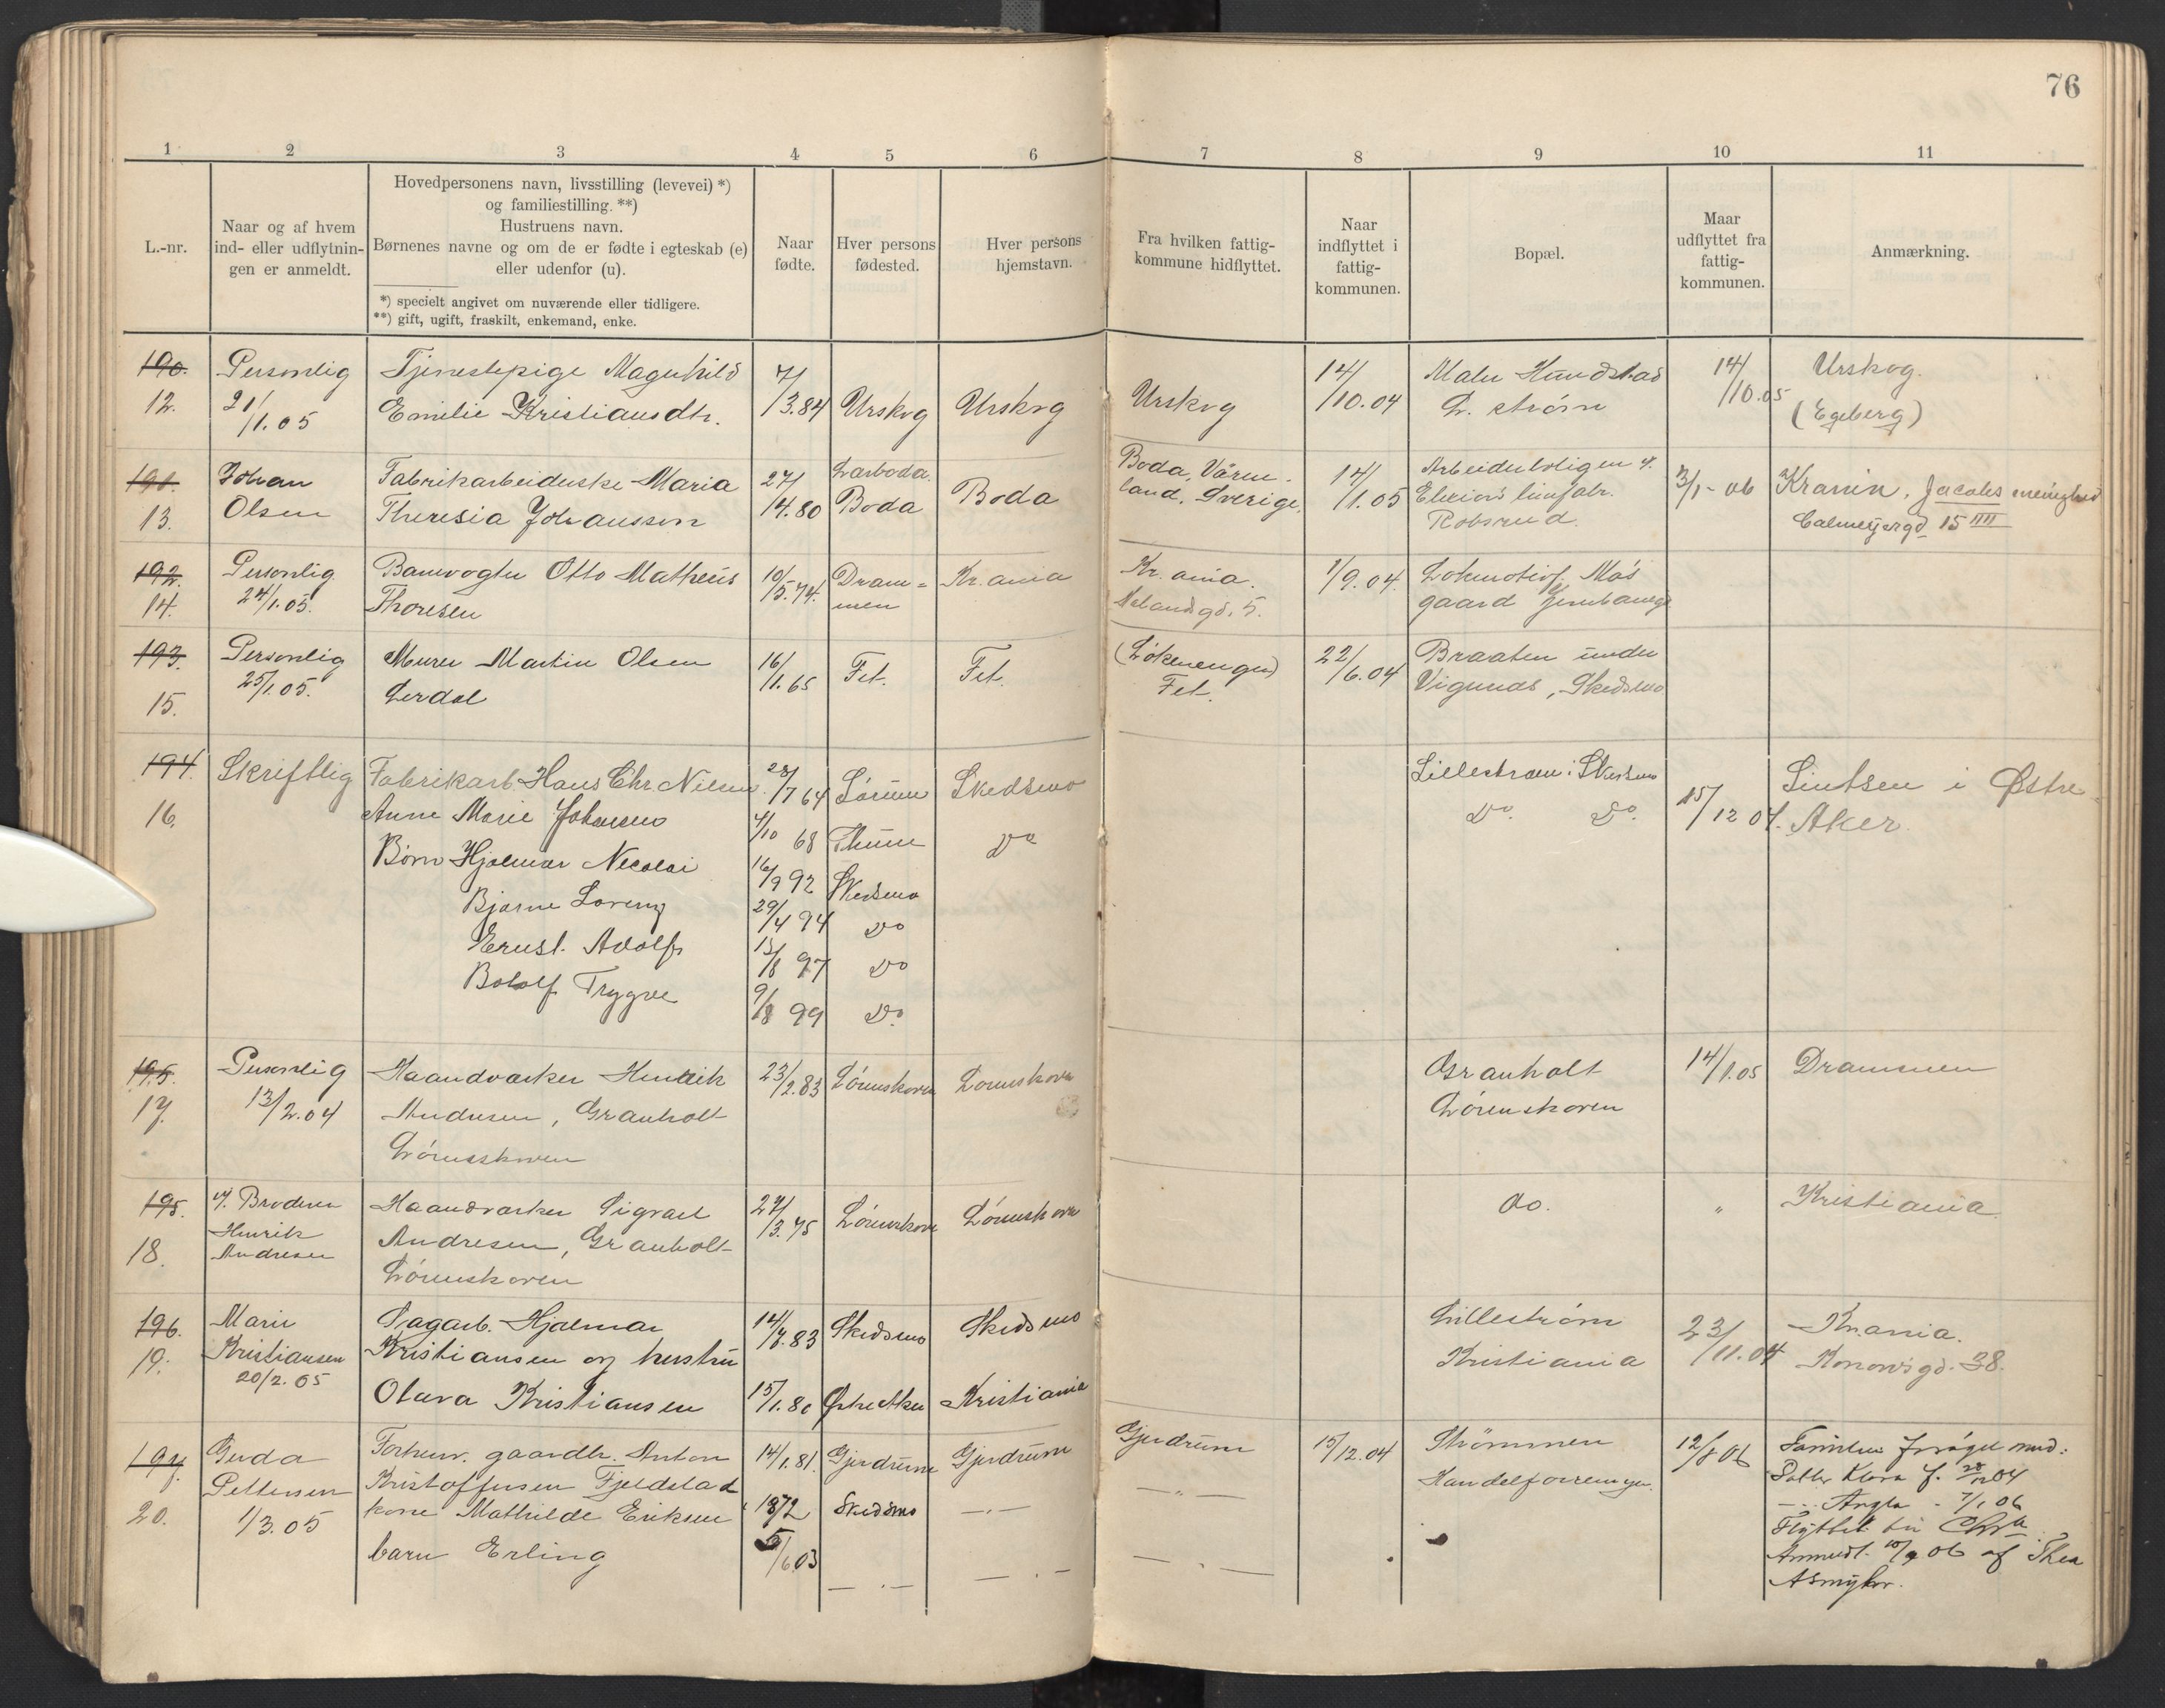 76
1 2 3 4 5 6 7 8 9 10 11
L.-nr.
Naar og af hvem
ind- eller udflytnin-
gen er anmeldt.
Hovedpersonens navn, livsstilling (levevei) *)
og familiestilling. **)
Hustruens navn.
Børnenes navne og om de er fødte i egteskab (e)
eller udenfor (u).
*) specielt angivet om nuværende eller tidligere.
**) gift, ugift, fraskilt, enkemand, enke.
Naar
fødte.
Hver persons
fødested.
Hver persons
hjemstavn.
Fra hvilken fattig-
kommune hidflyttet.
Naar
indflyttet i
fattig-
kommunen.
Bopæl.
Maar
udflyttet fra
fattig-
kommunen.
Anmærkning.
190. Personlig Tjenestepige Magnhild 7/ 14/ Malu Hundstad 14/ Urskog.
12. 21/1.05 Emilie Kristiansdtr. /3.84 Urskog Urskog Urskog /10.04 L. strøm /10.05 (Egeberg)
191. Johan Fabrikarbeiderske Maria 27/ Boda, Värm- 14/ Arbeiderboligen v. 3/1-06 Jacobs menighed
13. Olsen Theresia Johansson /4.80 Boda Boda land, Sverige. /1.05 Robsrud. Calmeyergd 15 IIII
192. Personlig Otto Matheus 10/5.74. Dram= Kr.ania Kr.ania. 1/9.04.
14. 24/1.05. Thoresen men gaard Jernbane
193. Personlig Murer Martin Olsen 16/ Fet. Fet. 22/ Braaten under
15. 25/1.05. Lerdal /1.65 Fet. /6.04 Vigernes, Skedsmo
194. Skriftlig Fabrikarb. Hans Chr. Nilsen 28/7 64 Sørum Skedsmo Lillestrøm i Skedsmo 15/12 04. Sinsen i Østre
16. Anne Marie Johansen 4/10 68 do do. do. Aker.
Børn Hjalmar Nicolai 16/9 92 Skedsmo
Bjarne Loreng 29/4 94 do
Ernst Adolf 13/8 97 do
Botolf Trygve 9/8 99 do.
195. Personlig Haandværker Henrik 23/2.83 Lørenskoven Lørenskoven Granholt 14/1.05 Drammen
17. 13/2.04 Andresen, Granholt Lørenskoven
Lørenskoven
195. v/. Broderen Haandværker Sigvart 27/ Lørenskoven Lørenskoven do. " Kristiania
Henrik
18. Andresen Andresen, Granholt /3.75
Lørenskoven
196. Marie Sagarb. Hjalmar 14/7.83 Skedsmo Skedsmo Lillestrøm 23/ Kr.ania.
19. Kristiansen Kristiansen og hustru Kristiania /11.04 Konowsgd. 38.
20/2.05 Olava Kristiansen 15/1.80 Østre Aker Kristiania
197. Gerda Forhenv. gaardbr. Anton 14/1.81. Gjerdrum Gjerdrum Gjerdrum 15/12.04 Strømmen 12/8 06 Familien forøget med:
Pettersen Kristoffersen Fjeldstad — " — Handelsforeningen. Datter Klara f. 28/12 04
20. 1/3.05 kone Mathilde Eriksen 1872 Skedsmo — . — — . — Angla - 7/1 06
Flyttet til Chra
barn Erling 5/6.03 — . — — . — — . — Anmeldt 10/9 06 af Thea